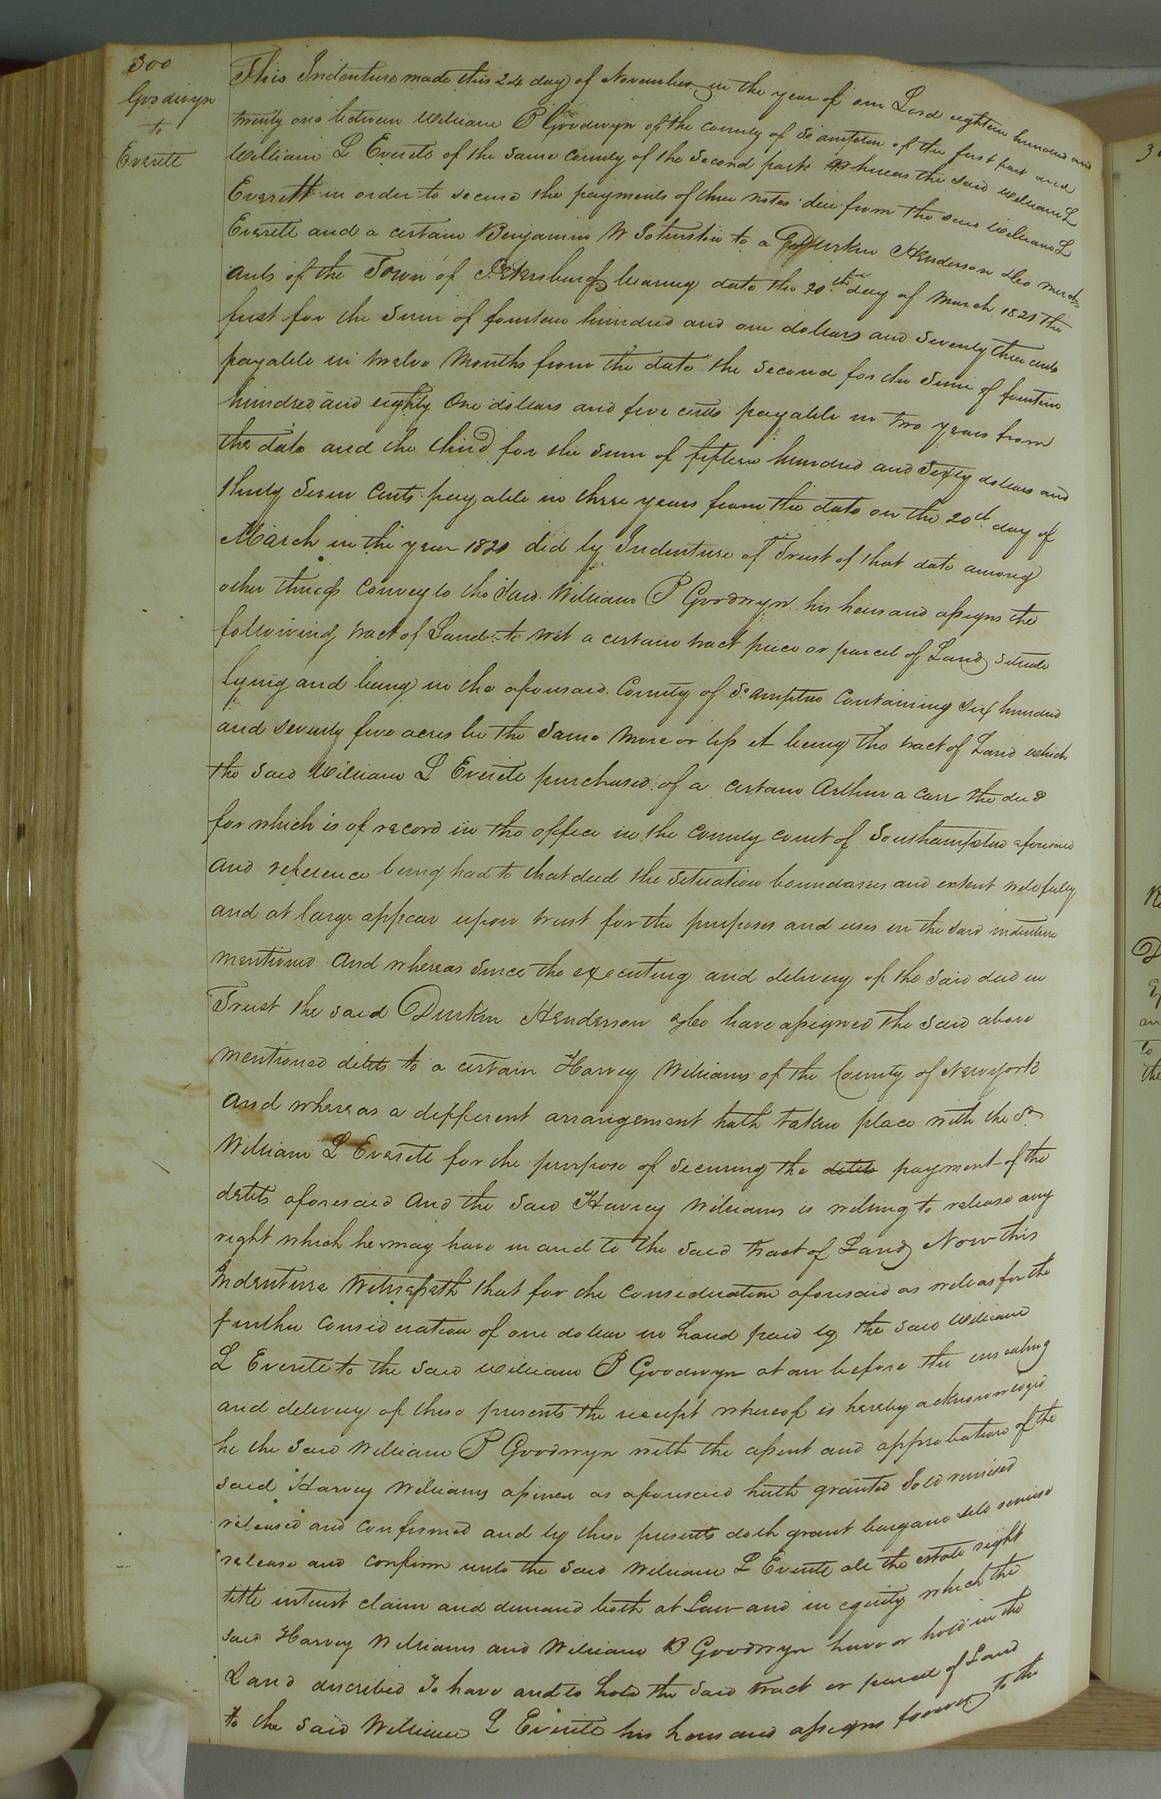 300
Goodwyn
to
Everett
This Indenture made this 24 day of November in the year of our Lord eighteen hundred and
twenty one between William P Goodwyn of the county of So ampton of the first part and
William L Everete of the same county of the second part whereas the said William L
Everett in order to secure the payments of three notes due from the said William L
Everete and a certain Benjamin W to a Durkin Henderson & Co merch
ants of the Town of Petersburg bearing date the 20th day of March 1821 the
first for the Sum of fourteen hundred and one dollars and Seventy three cents
payable in twelve Months from the date the Second for the Sum of fourteen
hundred and eighty One dollars and five cents payable in two years from
the date and the third for the Sum of fifteen hundred and Sixty dollars and
thirty Seven Cents payable in three years from the date on the 20th day of
March in the year 1821 did by Indenture of Trust of that date among
other things Convey to the Said William P Goodwyn his heirs and assigns the
following tract of Land to wit a certain tract piece or parcel of Land Situate
lying and being in the aforesaid County of So ampton Containing Six hundred
and Seventy five acres be the Same More or less it being the tract of Land which
the Said William L Everete purchased of a certain Arthur a Carr the deed
for which is of record in the office in the County Court of Southampton aforesaid
And reference being had to that deed the Situation boundaries and extent will fully
and at large appear upon trust for the purposes and uses in the Said indenture
mentioned And whereas Since the executing and delivery of the Said deed in
Trust the said Durkin Henderson & Co have assigned the Said above
mentioned debts to a certain Harvey Williams of the County of New york
And whereas a different arrangement hath taken place with the Sd
William L Everete for the purpose of Securing the debts payment of the
debts aforesaid And the Said Harvey Williams is willing to release any
right which he may have in and to the Said tract of Land Now this
Indenture Witnesseth that for the Consideration aforesaid as well as for the
further Consideration of one dollar in hand paid by the said William
L Everete to the Said William P Goodwyn at or before the ensealing
and delivery of these presents the receipt whereof is hereby acknowledged
he the Said William P Goodwyn with the assent and approbation of the
Said Harvey Williams as aforesaid hath granted Sold remised
released and confirmed and by these presents doth grant bargain sell remise
release and confirm unto the Said William L Everete all the estate right
title interest claim and demand both at Law and in equity which the
said Harvey Williams and William B Goodwyn have or hold in the
Land described To have and to hold the Said tract or parcel of Land
to the Said William L Everete his heirs and assigns forever to the